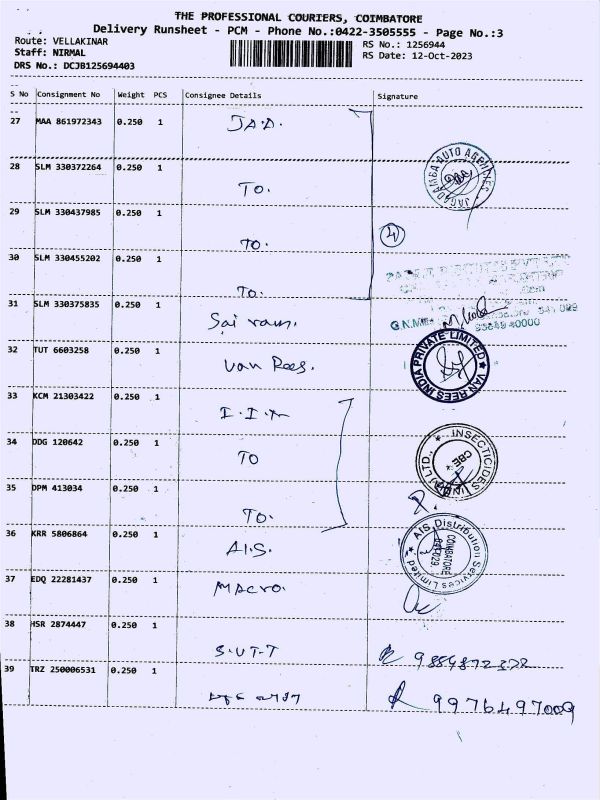 THE PROFESSIONAL COURIERS, COIMBATORE
Delivery Runsheet - PCM - Phone No.:0422-3505555 - Page No.:3
Route: VELLAKINAR
Staff: NIRMAL
DRS No.: DCJB125694403
RS No.: 1256944
RS Date: 12-Oct-2023
S No Consignment No Weight PCS Consignee Details Signature
27 MAA 861972343 0.250 1 J.A.A.
28 SLM 330372264 0.250 1 TO.
JAGADAMBA AUTO AGENCIES
29 SLM 330437985 0.250 1 TO.
4
30 SLM 330455202 0.250 1 TO.
31 SLM 330375835 0.250 1 Sai ram.
G.N.Mills
641 029
40000
32 TUT 6603258 0.250 1 Van Rees.
VAN REES INDIA PRIVATE LIMITED
33 KCM 21303422 0.250 1 I.I.
34 DDG 120642 0.250 1 TO
INSECTICIDES (INDIA) LTD.,
CBE
35 DPM 413034 0.250 1 TO.
36 KRR 5806864 0.250 1 A.I.S.
AIS Distribution Services Limited
COIMBATORE
641 029
37 EDQ 22281437 0.250 1 Macro.
38 HSR 2874447 0.250 1 S.U.T.T
39 TRZ 250006531 0.250 1
9976497009